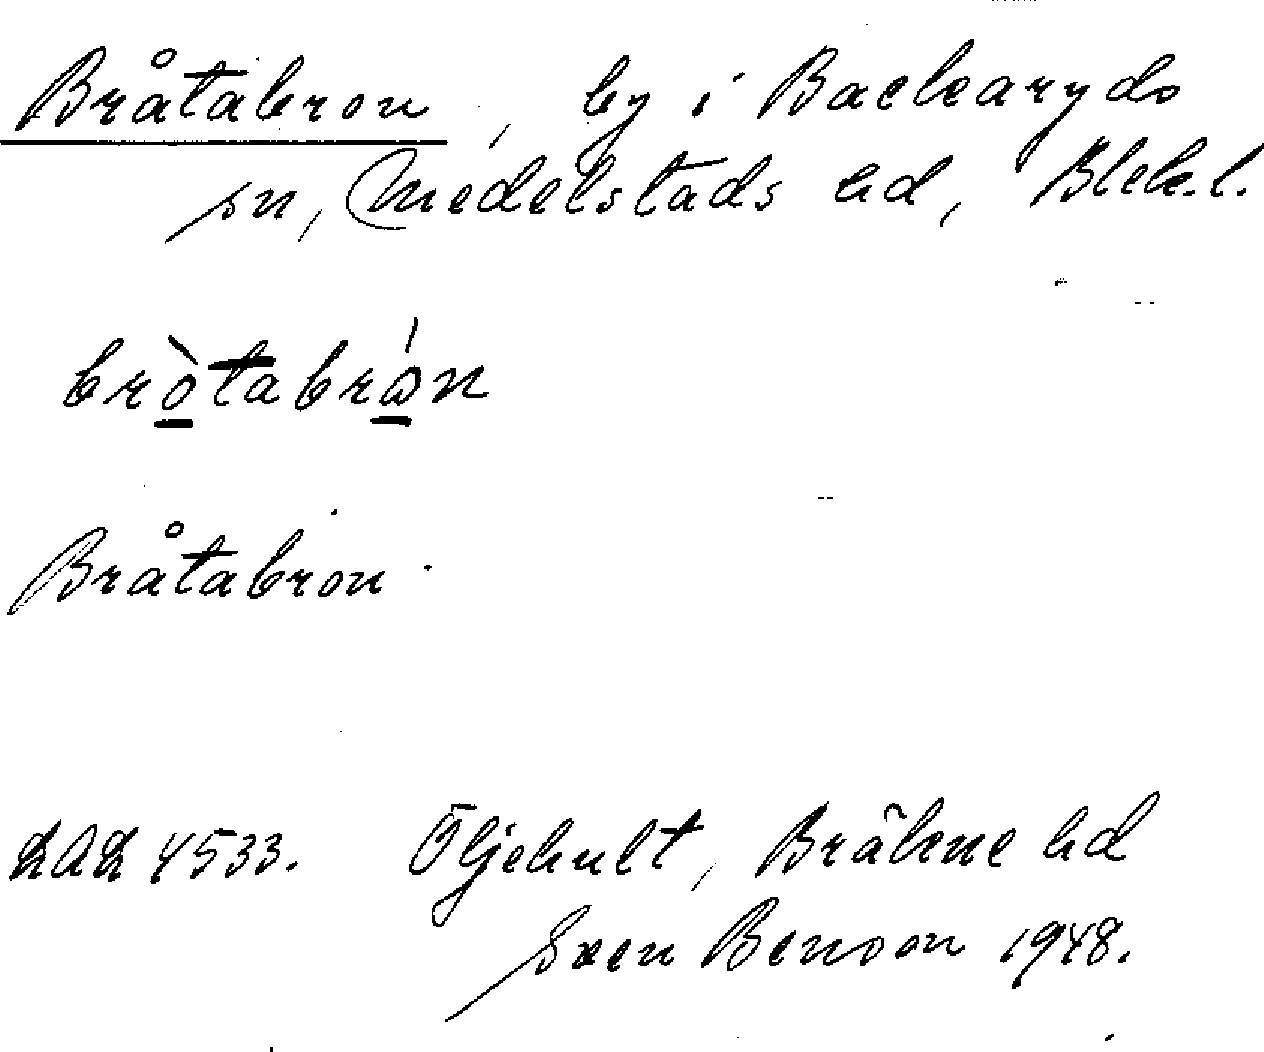 Bråtabron, by i Backaryds
sn, Medelstads hd, Blek.l.
brò̲tabrɷ̲́n
Bråtabron
LAL 4533. Öljehult, Bräkne hd
Sven Benson 1948.